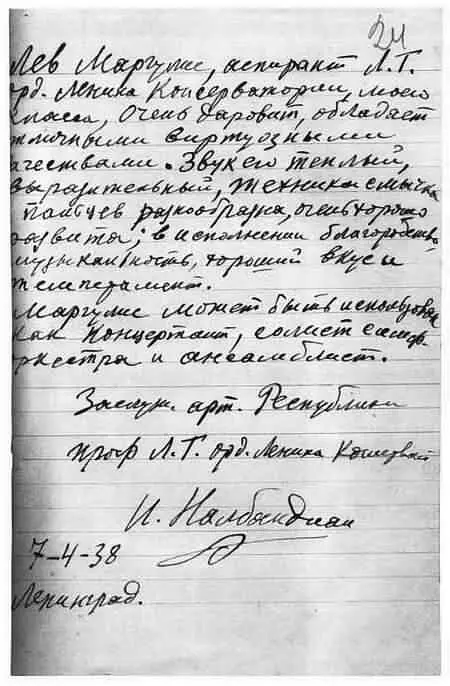 24
Лев Маргулис, аспирант Л.Г.
орд. Ленина Консерватории, моего
класса, очень даровит, обладает
отличными виртуозными
качествами. Звук его теплый,
выразительный, техника смычка
пальцев разнообразна, очень хорошо
развита; в исполнении благородство,
музыкальность, хороший вкус и
темперамент.
Маргулис может быть использован
как концертант, солист симф.
оркестра и ансамблист.
Заслуж. арт. Республики
проф Л.Г. орд. Ленина Консерват
И. Налбандиан
7-4-38
Ленинград.